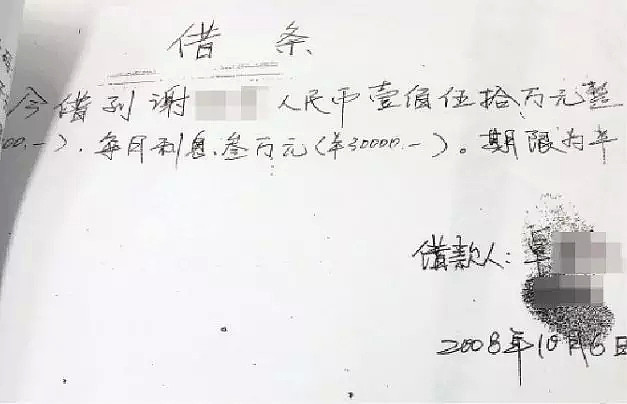 借 条
今借到谢 人民币壹佰伍拾万元整
00.—）.每月利息.叁万元(¥30000.—)。期限为半
借款人:
2008年10月6日